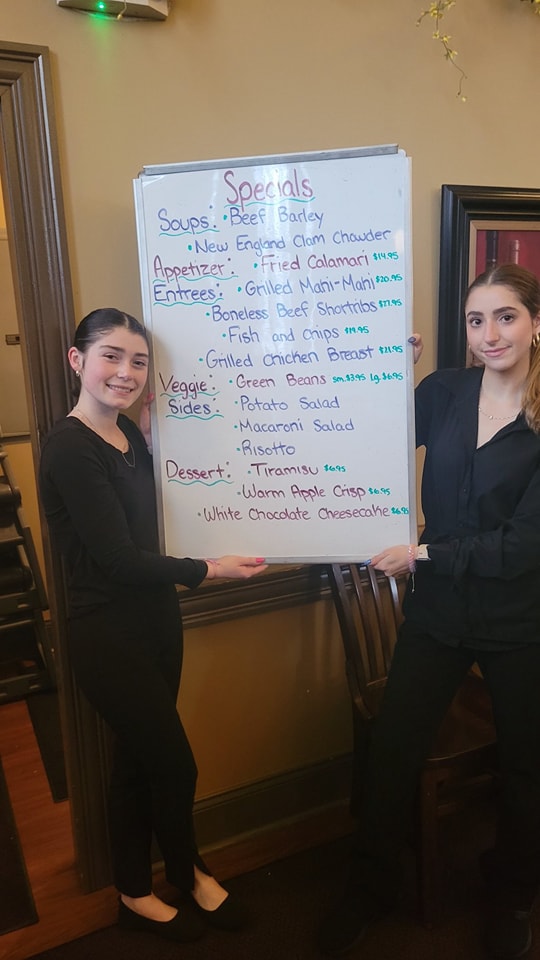 Specials
Soups: • Beef Barley
• New England Clam Chowder
Appetizer: • Fried Calamari $14.95
Entrees: • Grilled Mahi-Mahi $20.95
• Boneless Beef Shortribs
• Fish and chips $19.95
• Grilled Chicken Breast $21.95
Veggie: • Green Beans sm.$3.95 lg.$6.95
Sides: • Potato Salad
• Macaroni Salad
• Risotto
Dessert: • Tiramisu $6.95
• Warm Apple Crisp $6.95
• White Chocolate Cheesecake $6.95